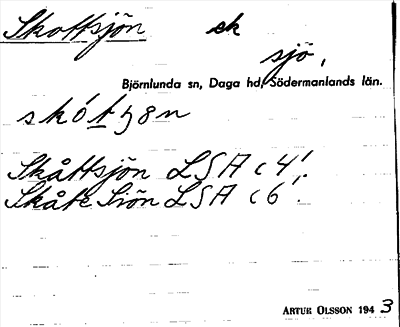 Skottsjön ek
sjö,
Björnlunda sn, Daga hd, Södermanlands län.
skótʒ8n
Skåttsjön LSA c4!
Skåte Siön LSA c6!
ARTUR OLSSON 1943